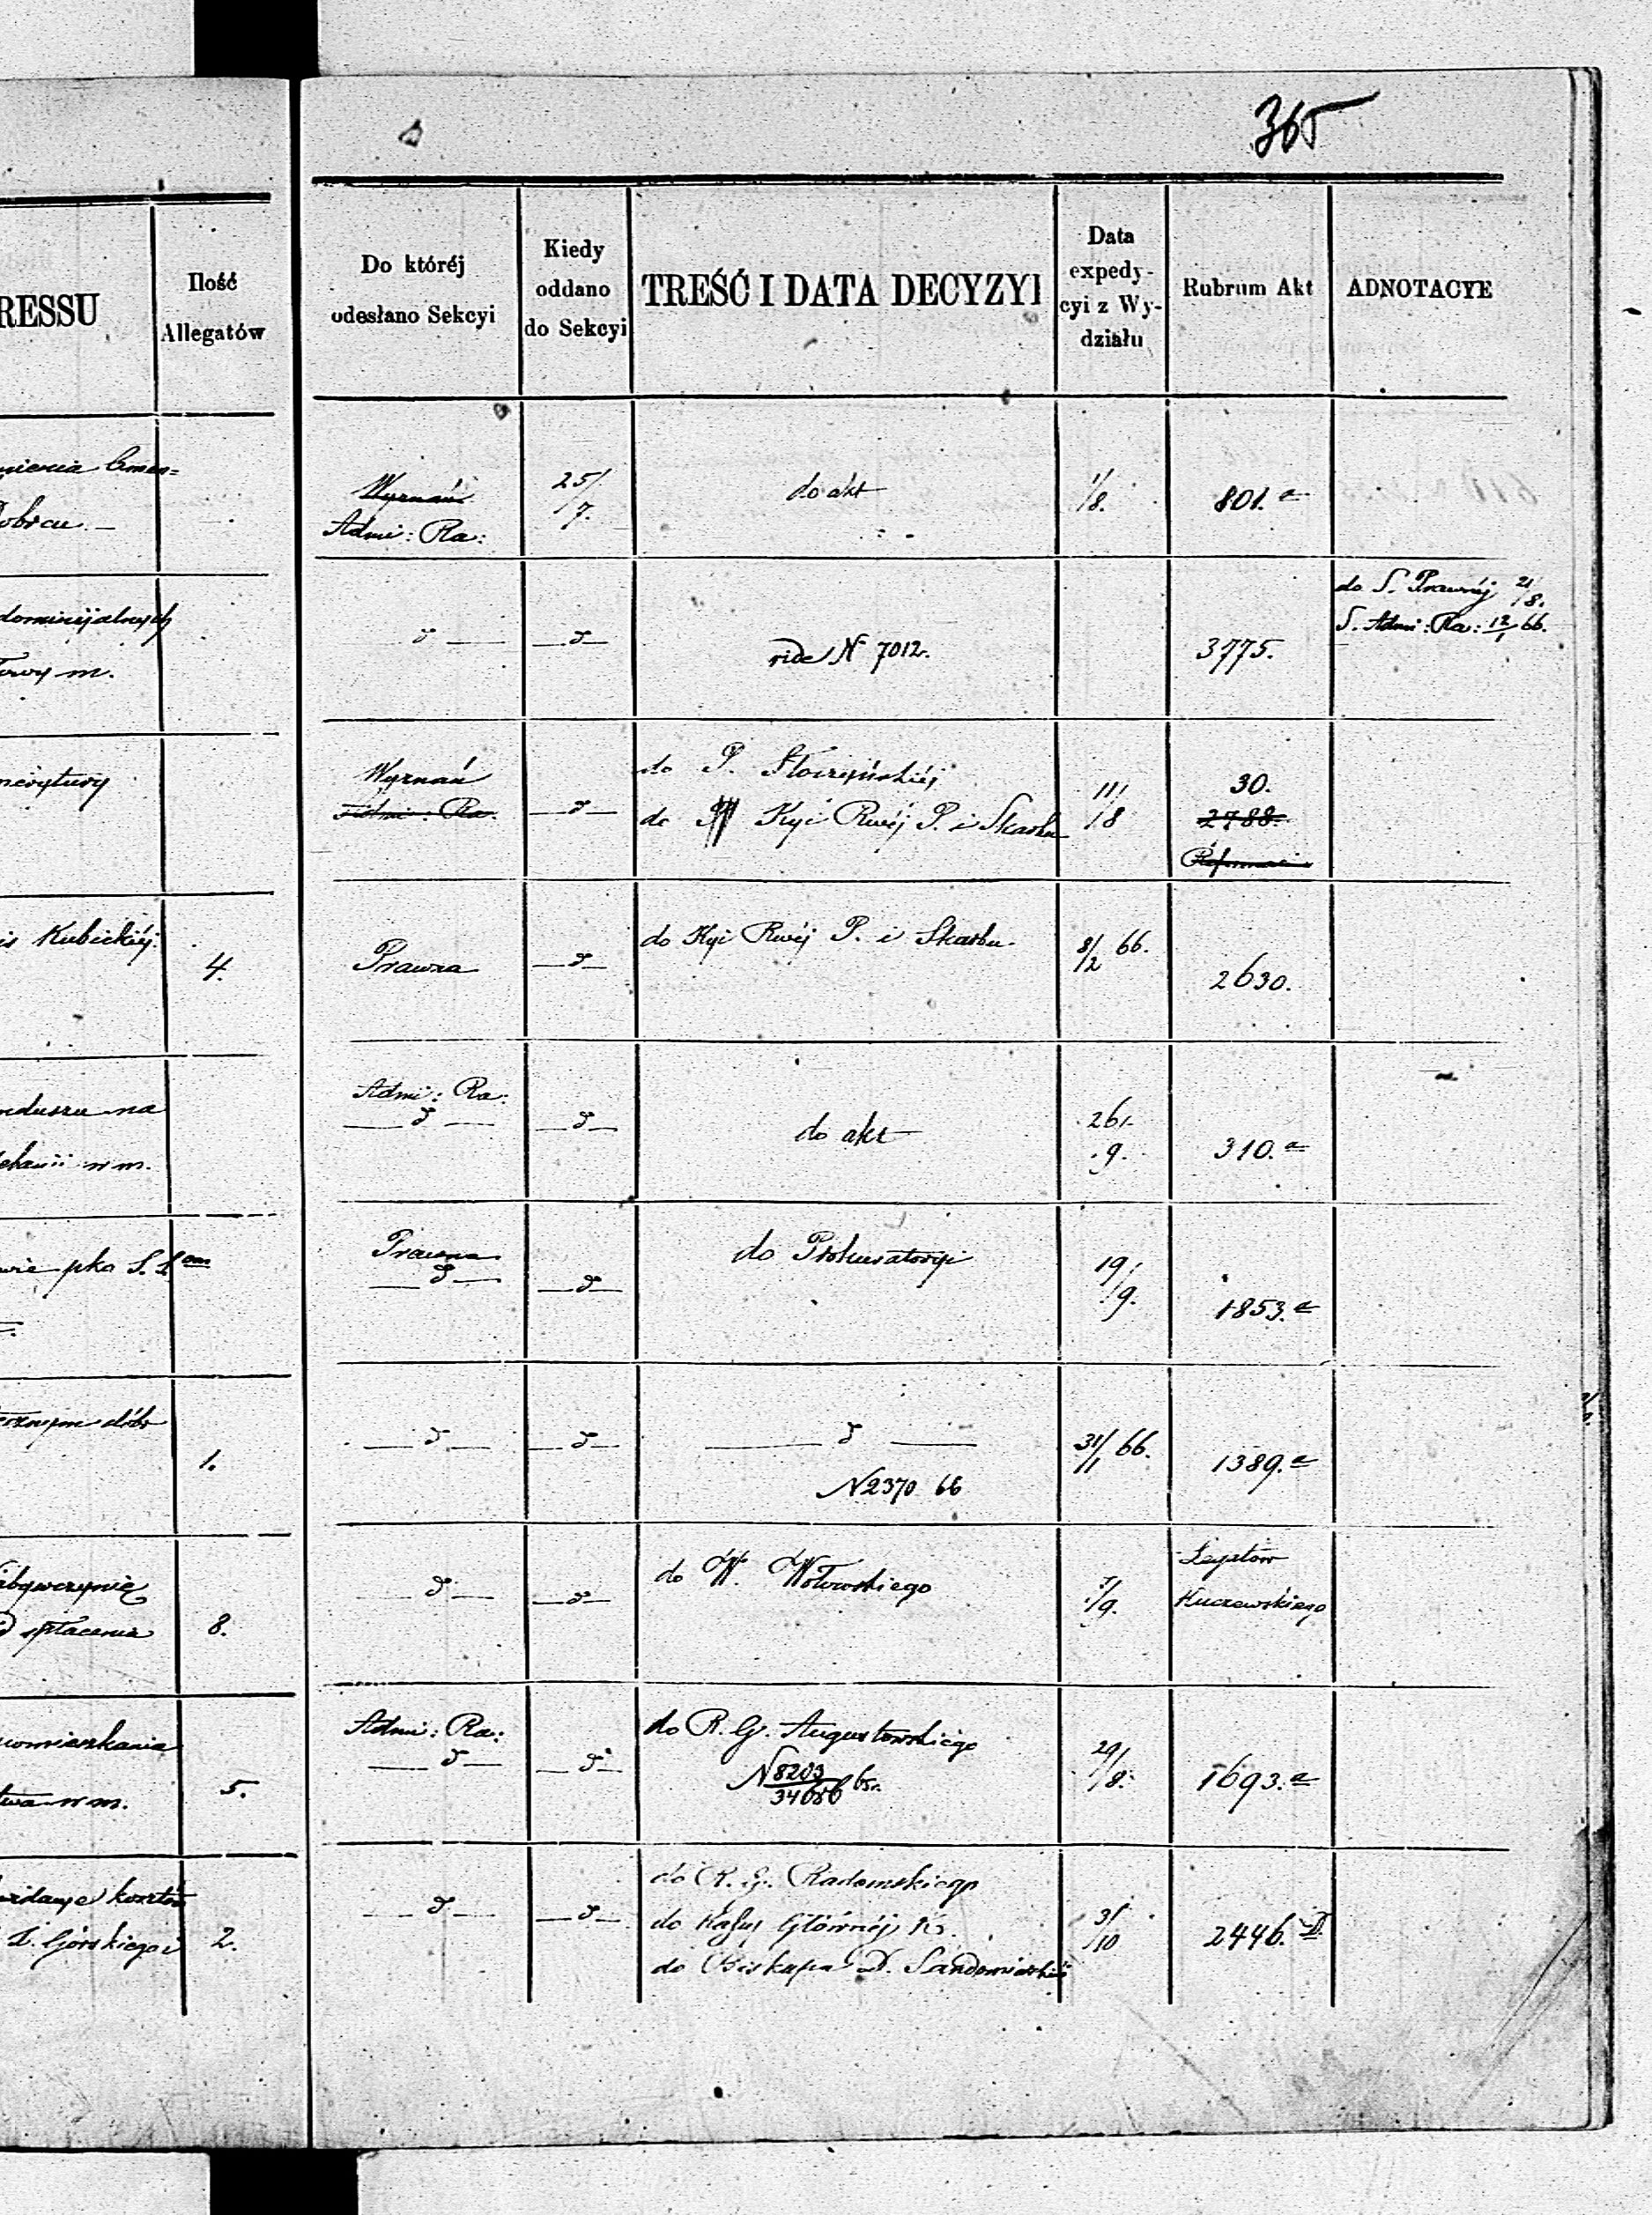 365
RESSU
Ilość
Allegatów
Do któréj
odesłano Sekcyi
Kiedy
oddano
do Sekcyi
TREŚĆ I DATA DECYZYI
Data
expedy-
cyi z Wy-
działu
Rubrum Akt
ADNOTACYE
Wyznań
Admi: Ra:
25/7.
do akt
1/8.
801. a
dominijalnych
m.
d
d
vide N 7012.
3775.
do S. Prawnéj 21/8.
S. Admi: Ra: 12/1 66.
Wyznań
Admi: Ra.
d
do P.
do Kyi Rwéj P. i Skarbu
11/8
30.
2788.
Kubickiéj.
4.
Prawna
d
do Kyi Rwéj P. i Skarbu.
8/2 66.
2630.
nduszu na
w m.
Admi: Ra:
d
d
do akt
26/9.
310. a
pko S.
Prawna
d
d
do Prokuratoryi
19/9.
1853. a
dóbr
1.
d
d
d
N 2370 66
31/1 66.
1389. a
spłacenia
8.
d
d
do W. Wołowskiego
1/9.
Legatów
Kuczewskiego
omieszkania
w m.
5.
Admi: Ra:
d
d
do R. G. Augustowskiego
N 8203
29/8.
1693. a
kosztów
Górskiego i
2.
d
d
do R. G. Radomskiego
do Kassy Głównéj K.
do Biskupa D. Sandomierskiéj
3/10
2446. D.